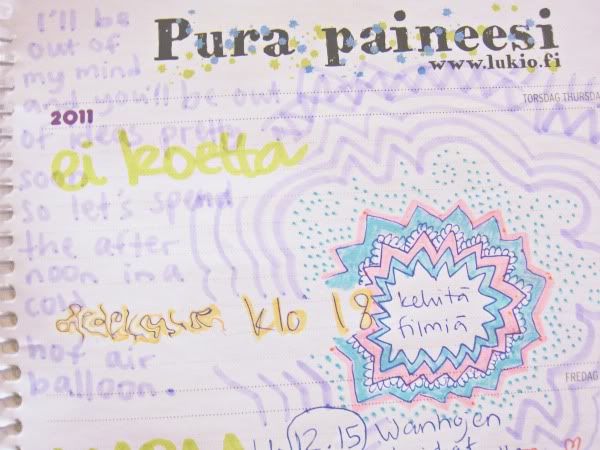 Pura paineesi
www.lukio.fi
I'll be
out of
my mind
and you'll be out
of ideas pretty
soon
so let's spend
the after
noon in a
cold
hot air
balloon.
TORSDAG THURSDA
2011
ei koetta
klo 18
kehitä
filmiä
FREDAG
12.15 Wanhojen